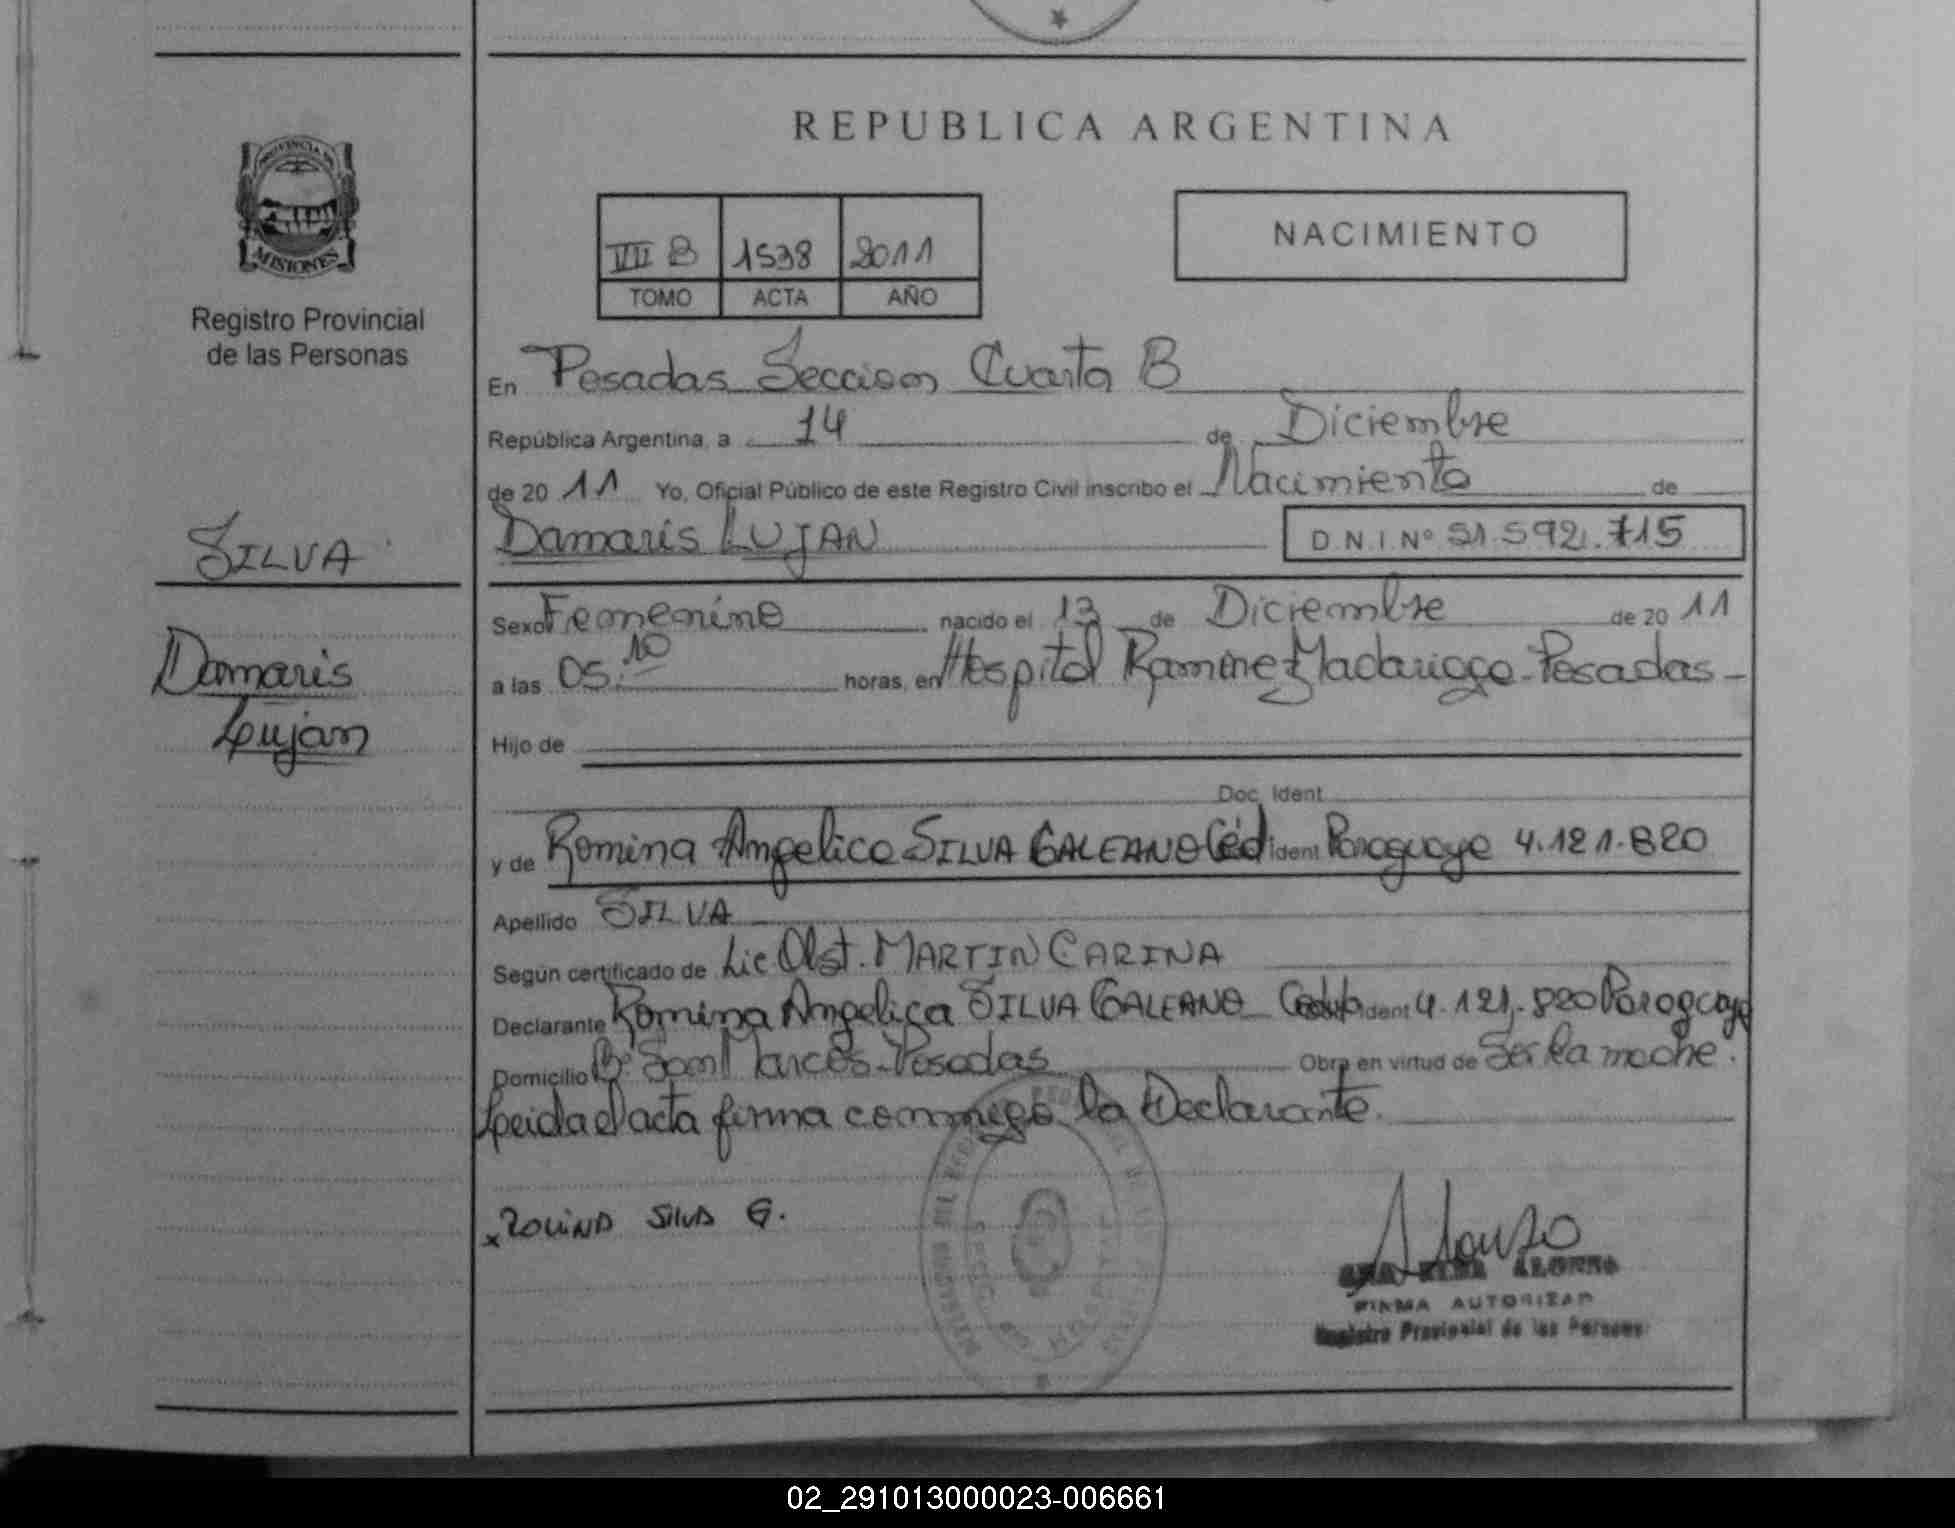 REPUBLICA ARGENTINA
PROVINCIA DE
MISIONES
Registro Provincial
de las Personas
NACIMIENTO
VII B 1538 2011
TOMO ACTA AÑO
En Posadas Seccion Cuarta B
República Argentina, a 14 de Diciembre
de 20 11 Yo, Oficial Público de este Registro Civil inscribo el Nacimiento de
SILVA
Damaris LUJAN D.N.I.Nº 51.592.715
Damaris
Lujan
Sexo Femenino nacido el 13 de Diciembre de 20 11
a las 05:10 horas, en Hospital Ramón Madariaga - Posadas -
Hijo de
Doc. Ident.
y de Romina Angelica SILVA GALEANO Céd Ident Paraguaya 4.121.820
Apellido SILVA
Según certificado de Lic Obst. MARTIN CARINA
Declarante Romina Angelica SILVA GALEANO Cedula Ident 4.121.820 Paraguaya
Domicilio Bº San Marcos - Posadas Obra en virtud de Ser la madre.
Leida el acta firma conmigo la Declarante.
x Romina Silva G.
Alonso
ALONSO
FIRMA AUTORIZAD
Registro Provincial de las Personas
02_291013000023-006661